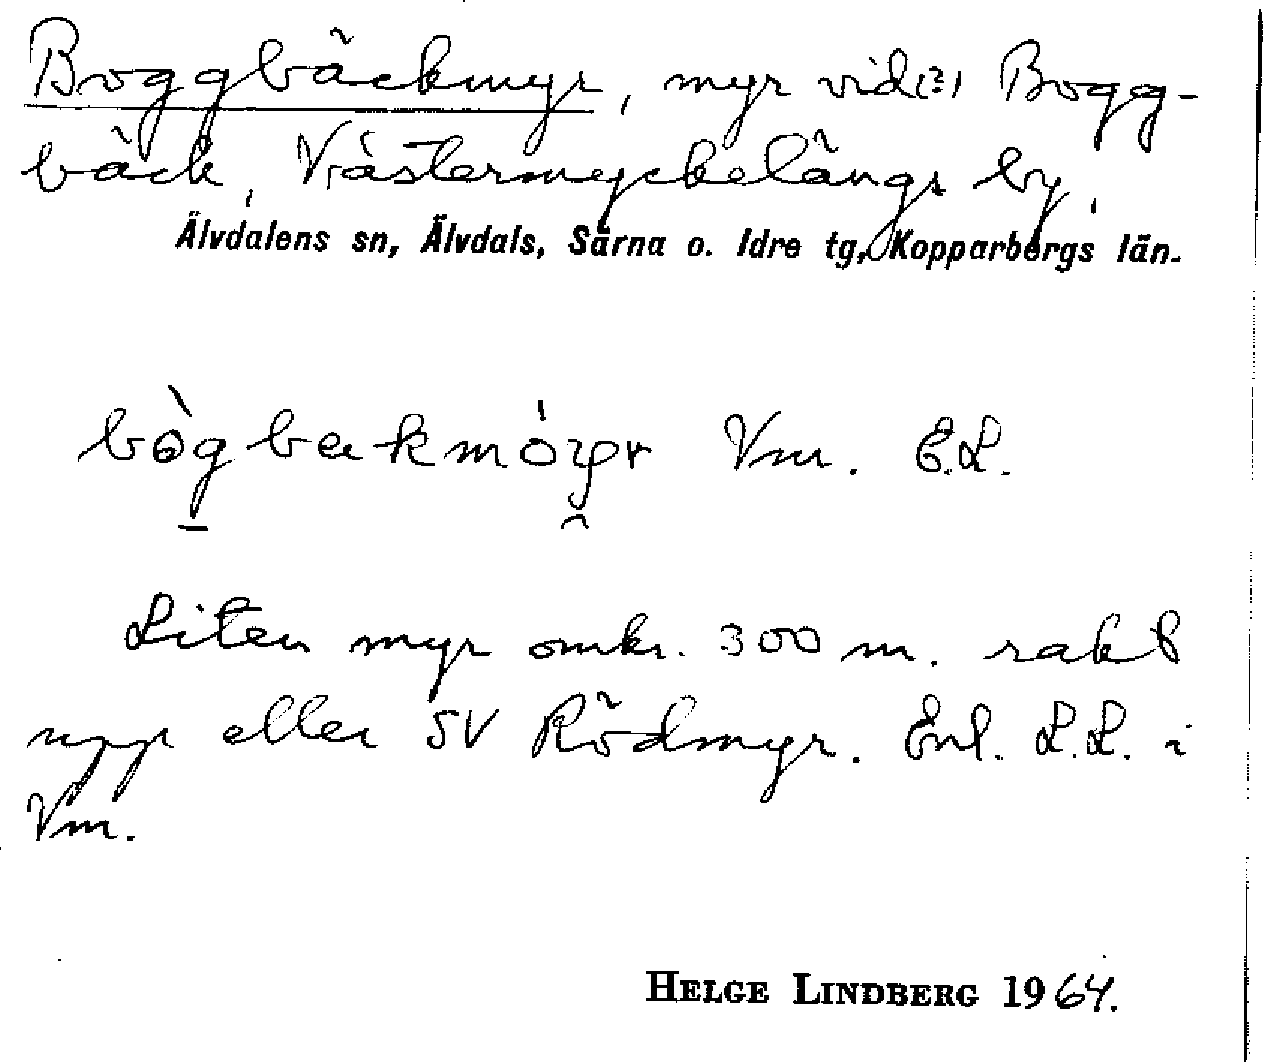 Boggbäckmyr, myr vid(3) Bogg-
bäck, Västermyckelängs by,
Älvdalens sn, Älvdals, Särna o. Idre tg, Kopparbergs län.
Vm. E.L.
Liten myr omkr. 300 m. rakt
upp eller SV Rödmyr. Enl. L.L. i
Vm.
HELGE LINDBERG 1964.